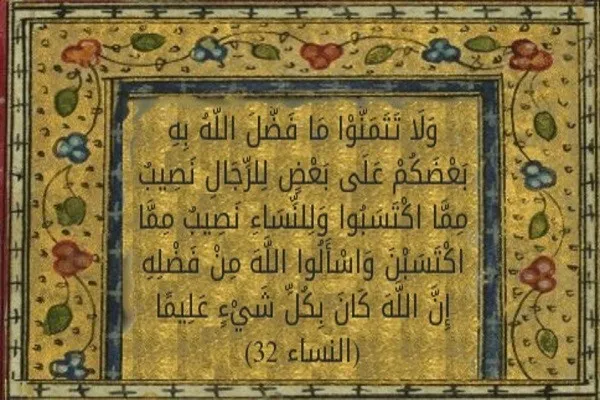 وَلَا تَتَمَنَّوْا مَا فَضَّلَ اللَّهُ بِهِ
بَعْضَكُمْ عَلَى بَعْضٍ لِلرِّجَالِ نَصِيبٌ
مِمَّا اكْتَسَبُوا وَلِلنِّسَاءِ نَصِيبٌ مِمَّا
اكْتَسَبْنَ وَاسْأَلُوا اللَّهَ مِنْ فَضْلِهِ
إِنَّ اللَّهَ كَانَ بِكُلِّ شَيْءٍ عَلِيمًا
(النساء 32)